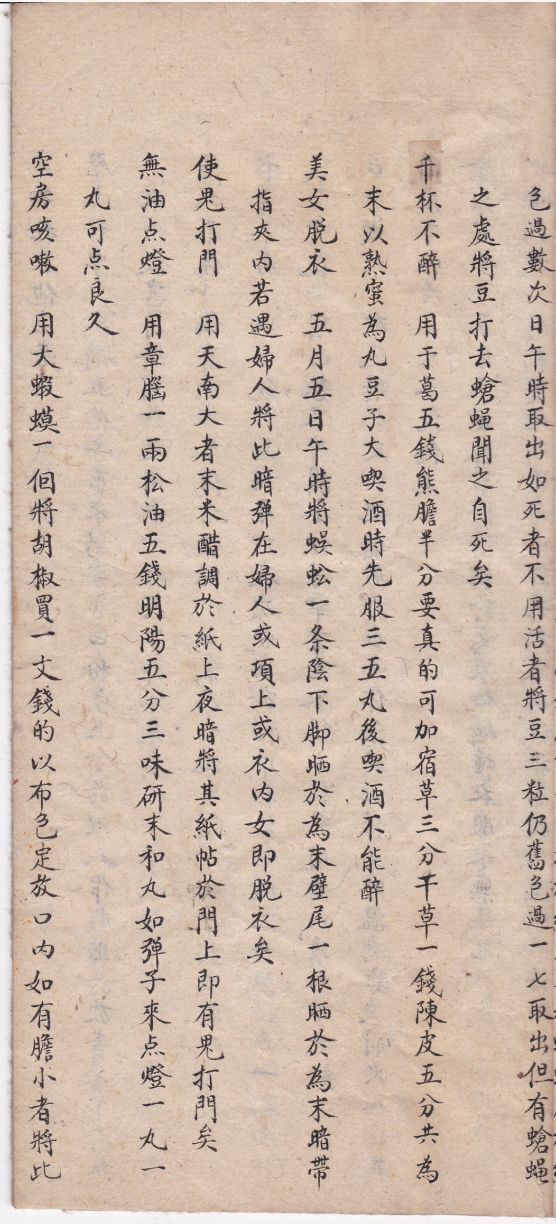 色過數次日午時取出如死者不用活者將豆三粒仍舊色過一七取出但有蒼蝇
之處將豆打去蒼蝇聞之自死矣
千杯不醉 用于葛五錢熊膽半分要真的可加宿草三分干草一錢陳皮五分共為
末以熟蜜為丸豆子大喫酒時先服三五丸後喫酒不能醉
美女脱衣 五月五日午時將蜈蚣一条陰下脚晒於為末壁尾一根晒於為末暗帶
指夾内若遇婦人將此暗彈在婦人或項上或衣内女即脱衣矣
使鬼打門 用天南大者末米醋調於紙上夜暗將其紙帖於門上即有鬼打門矣
無油点燈 用章腦一兩松油五錢明陽五分三味研末和丸如弹子來点燈一丸一
丸可点良久
空房咳嗽 用大蝦蟆一個將胡椒買一文錢的以布色定放口内如有膽小者將此